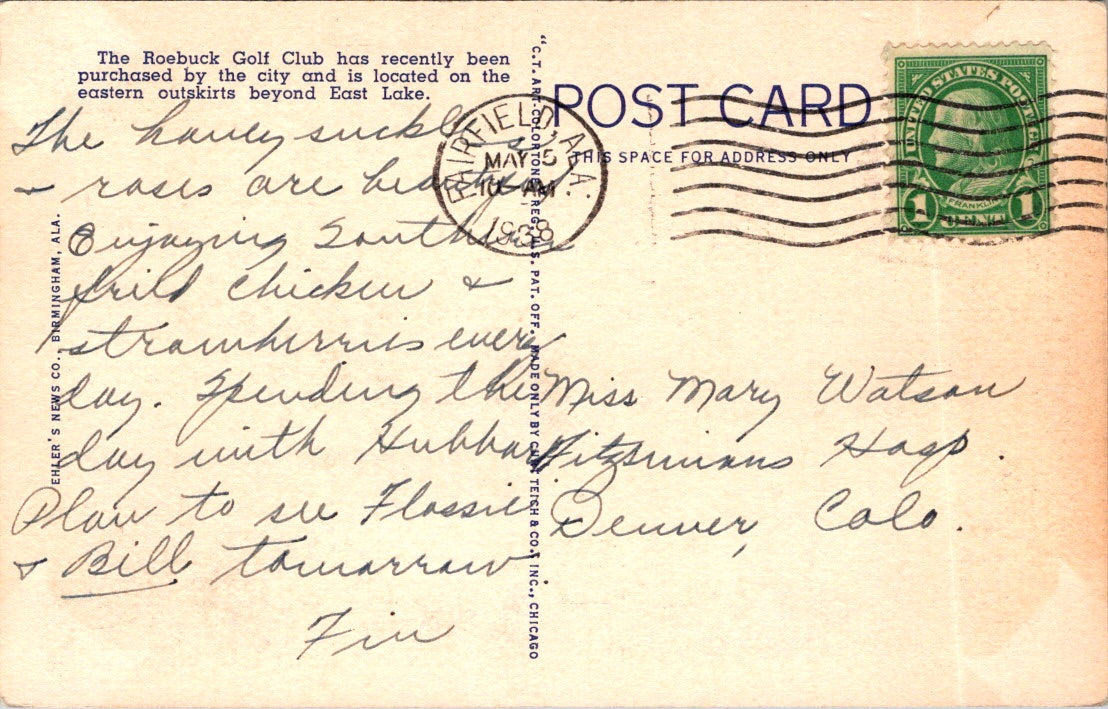 The Roebuck Golf Club has recently been
purchased by the city and is located on the
eastern outskirts beyond East Lake.
The honey suckle
& roses are
Enjoying Southern
frild chicken &
strawberries every
day. Spending the
day with Hubbard
Plan to see Flossie
& Bill tomorrow.
Fin
EHLER'S NEWS CO., BIRMINGHAM, ALA.
"C.T. ART-COLORTONE" REG. U.S. PAT. OFF. MADE ONLY BY CURT TEICH & CO., INC., CHICAGO
POST CARD
THIS SPACE FOR ADDRESS ONLY
FAIRFIELD, ALA.
MAY 5
10 AM
1938
UNITED STATES POSTAGE
FRANKLIN
1 CENT 1
Miss Mary Watson
Fitzsimans Hosp.
Denver, Colo.